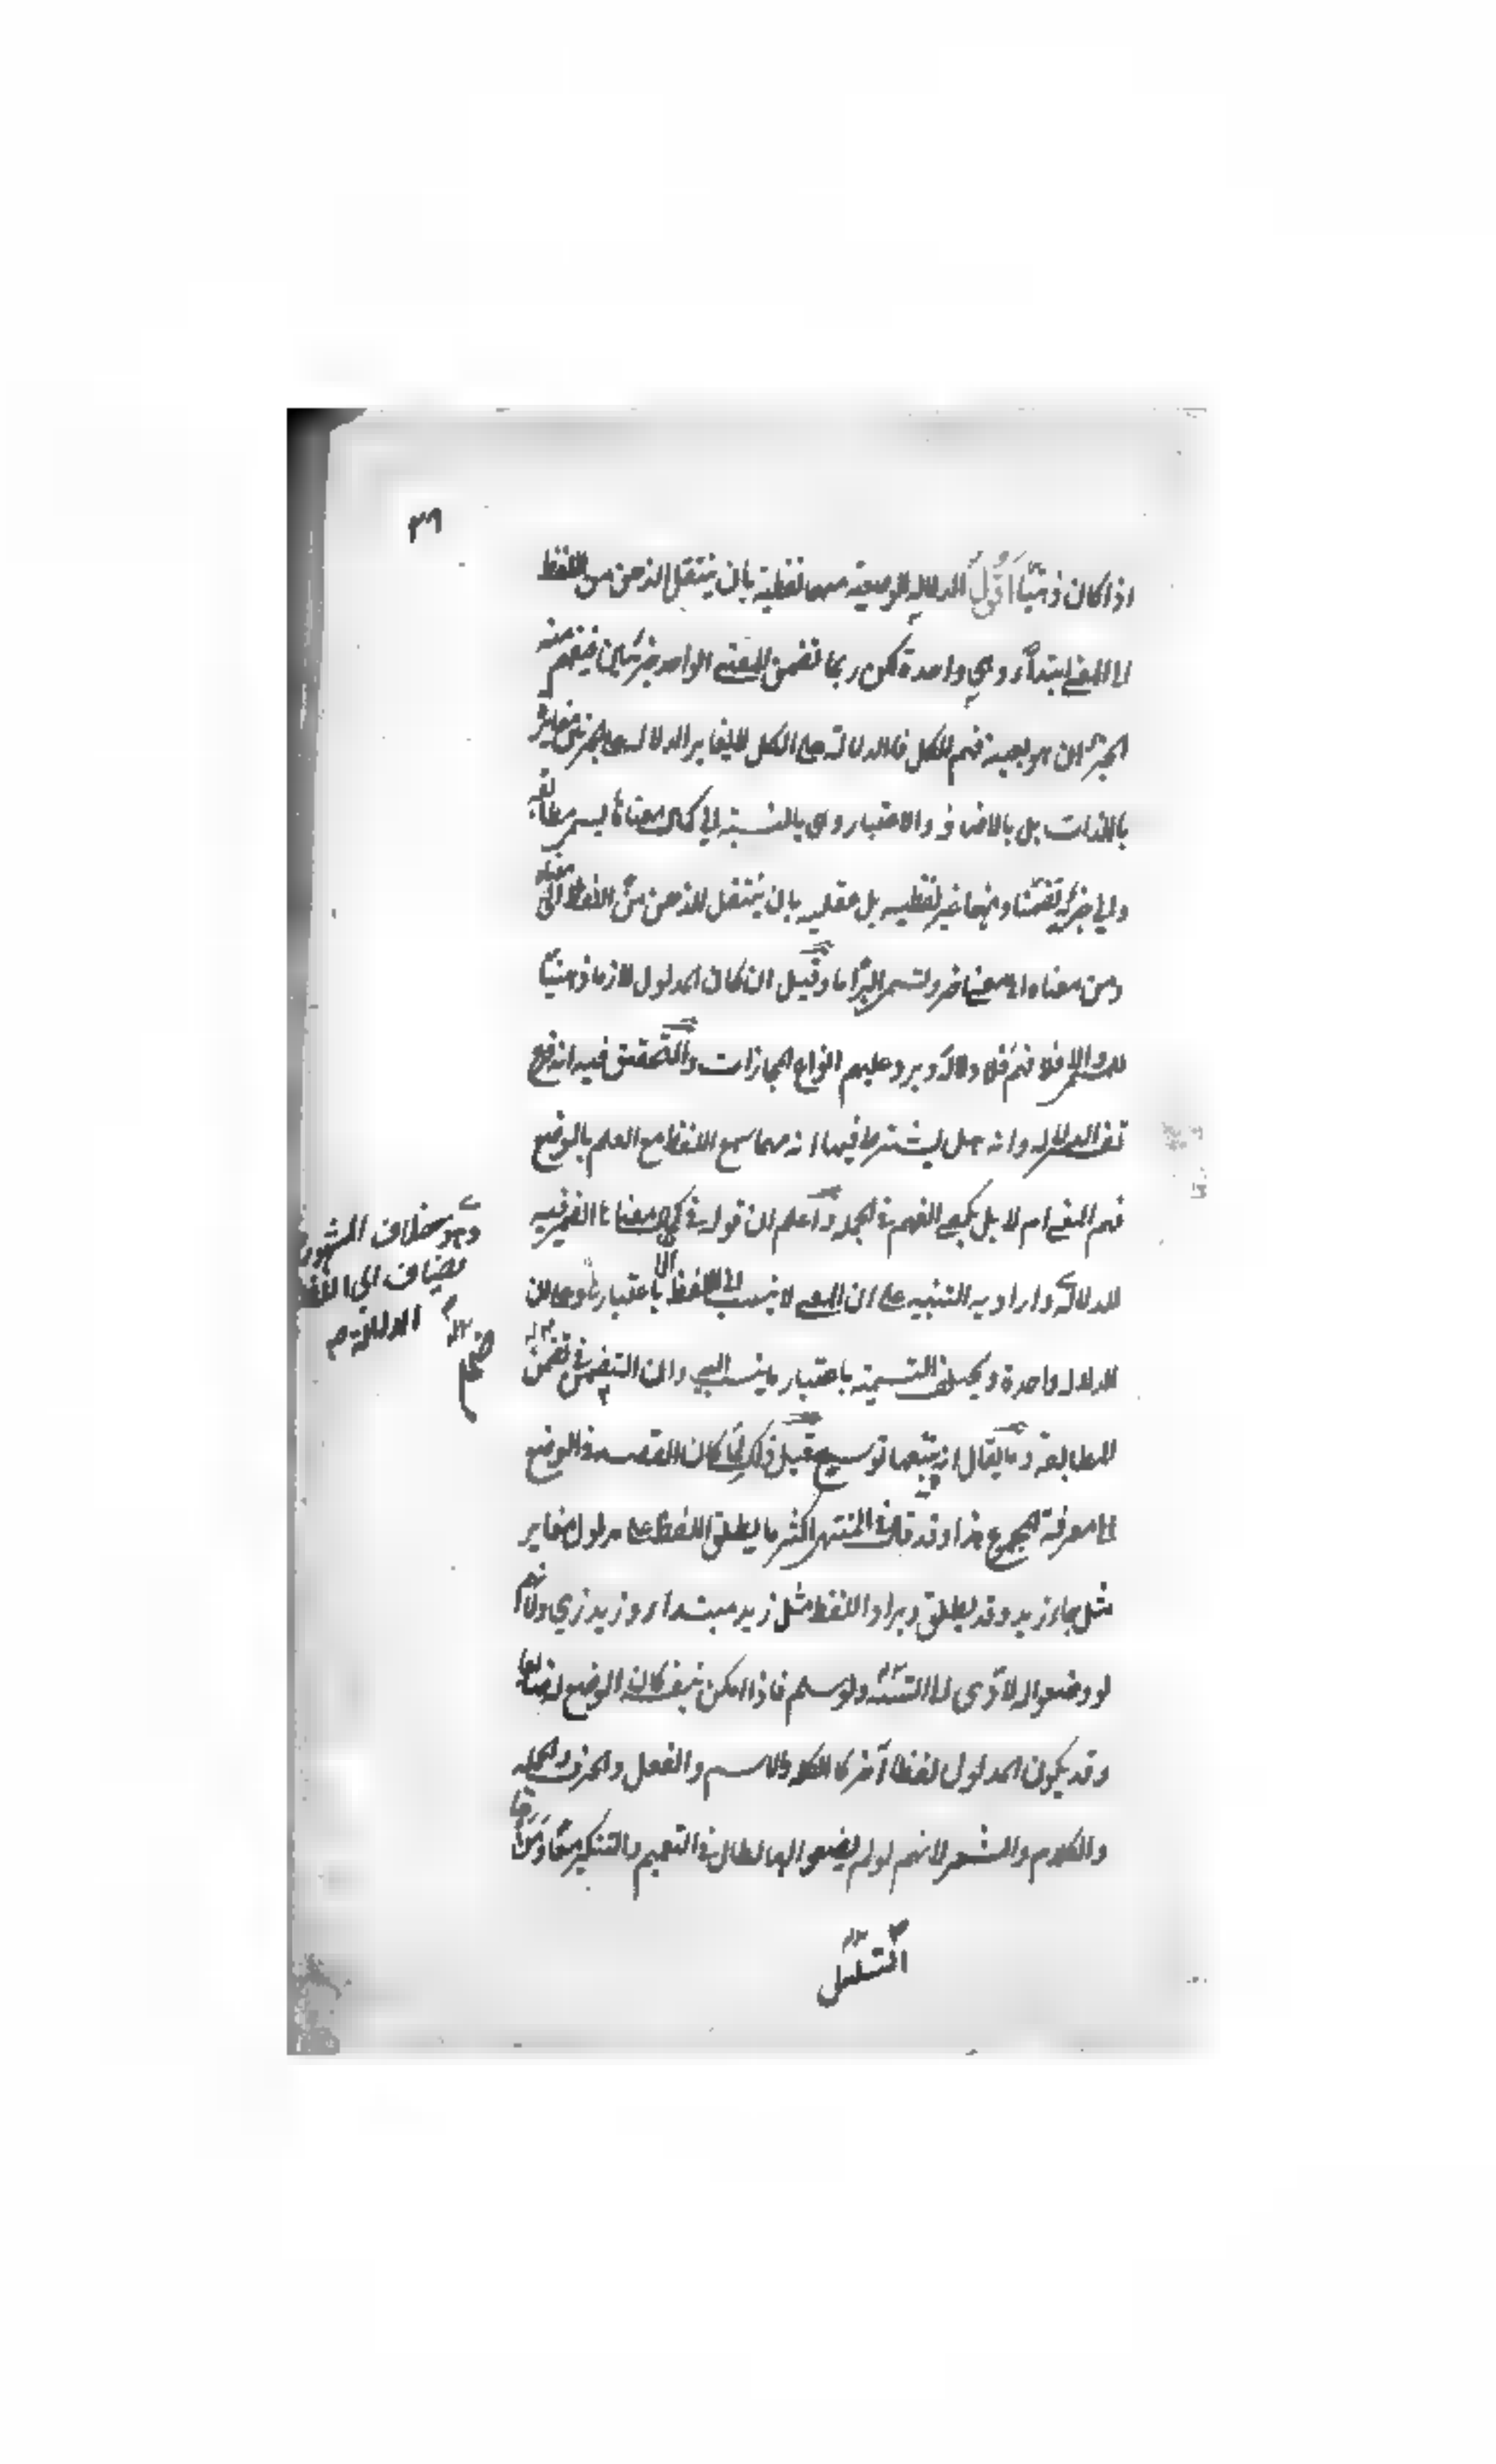 ٣٩
اذا كان ذهنيا اقول الدلالة الوضعية منها لفظية بان ينتقل الذهن من اللفظ
الى المعنى ابتداء وهي واحدة لكن ربما تضمن المعنى الواحد جزئين فيفهم منه
الجزءان وهو بعينه فهم الكل فالدلالة على الكل لا يغاير الدلالة على الجزئين مغايرة
بالذات بل بالاضافة والاعتبار وهي بالنسبة الى كمال معناها يسمى مطابقة
والى جزئه تضمنا ومنها غير لفظية بل عقلية بان ينتقل الذهن من اللفظ الى معناه
ومن معناه الى معنى آخر وتسمى التزاما وقيل ان كان المدلول لازما ذهنيا
والا فلا فهم فلا دلالة ويرد عليهم انواع المجازات والتحقيق فيه انه فرع
تفسير الدلالة وانه هل يشترط فيها انه مهما سمع اللفظ مع العلم بالوضع
فهم المعنى ام لا بل يكفي الفهم في الجملة واعلم ان قوله في كمال معناها الضمير فيه
للدلالة واراد به التنبيه على ان المعنى لا ينسب الى اللفظ الا باعتبارها وعلى ان
الدلالة واحدة ويختلف التسمية باعتبار ما ينسب اليه وان التضمن في ضمن
المطابقة وما يقال انه يتبعها توسع قيل ذلك لما كان القصد في الوضع
الى معرفة المجموع هذا وقد قال في المنتهى اكثر ما يطلق اللفظ على مدلول مغاير
مثل جاء زيد وقد يطلق ويراد اللفظ مثل زيد مبتداء وزيد زي د لانهم
لو وضعوا له لادى الى التسلسل ولو سلم فاذا امكن بنفسه كان الوضع له ضائعا
وقد يكون المدلول لفظا آخر كالكلمة والاسم والفعل والحرف والجملة
والكلام والشعر لانهم لو لم يضعوا لها لطال في التعميم والتنكير معا ومن
التسلسل
وهو خلاف المشهور
مضاف الى اللفظ
الدلالة